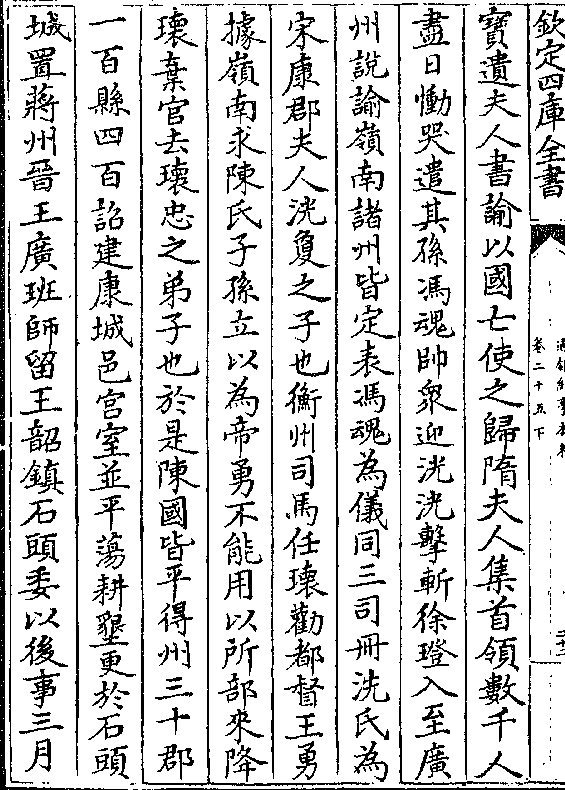 欽定四庫全書
通鑑紀事本末
卷二十五下
寶遺夫人書諭以國亡使之歸隋夫人集首領數千人
盡日慟哭遣其孫馮魂帥衆迎洸洸擊斬徐璒入至廣
州說諭嶺南諸州皆定表馮魂為儀同三司冊洗氏為
宋康郡夫人洸敻之子也衡州司馬任瓌勸都督王勇
據嶺南求陳氏子孫立以為帝勇不能用以所部來降
瓌棄官去瓌忠之弟子也於是陳國皆平得州三十郡
一百縣四百詔建康城邑宮室並平蕩耕墾更於石頭
城置蔣州晉王廣班師留王韶鎮石頭委以後事三月